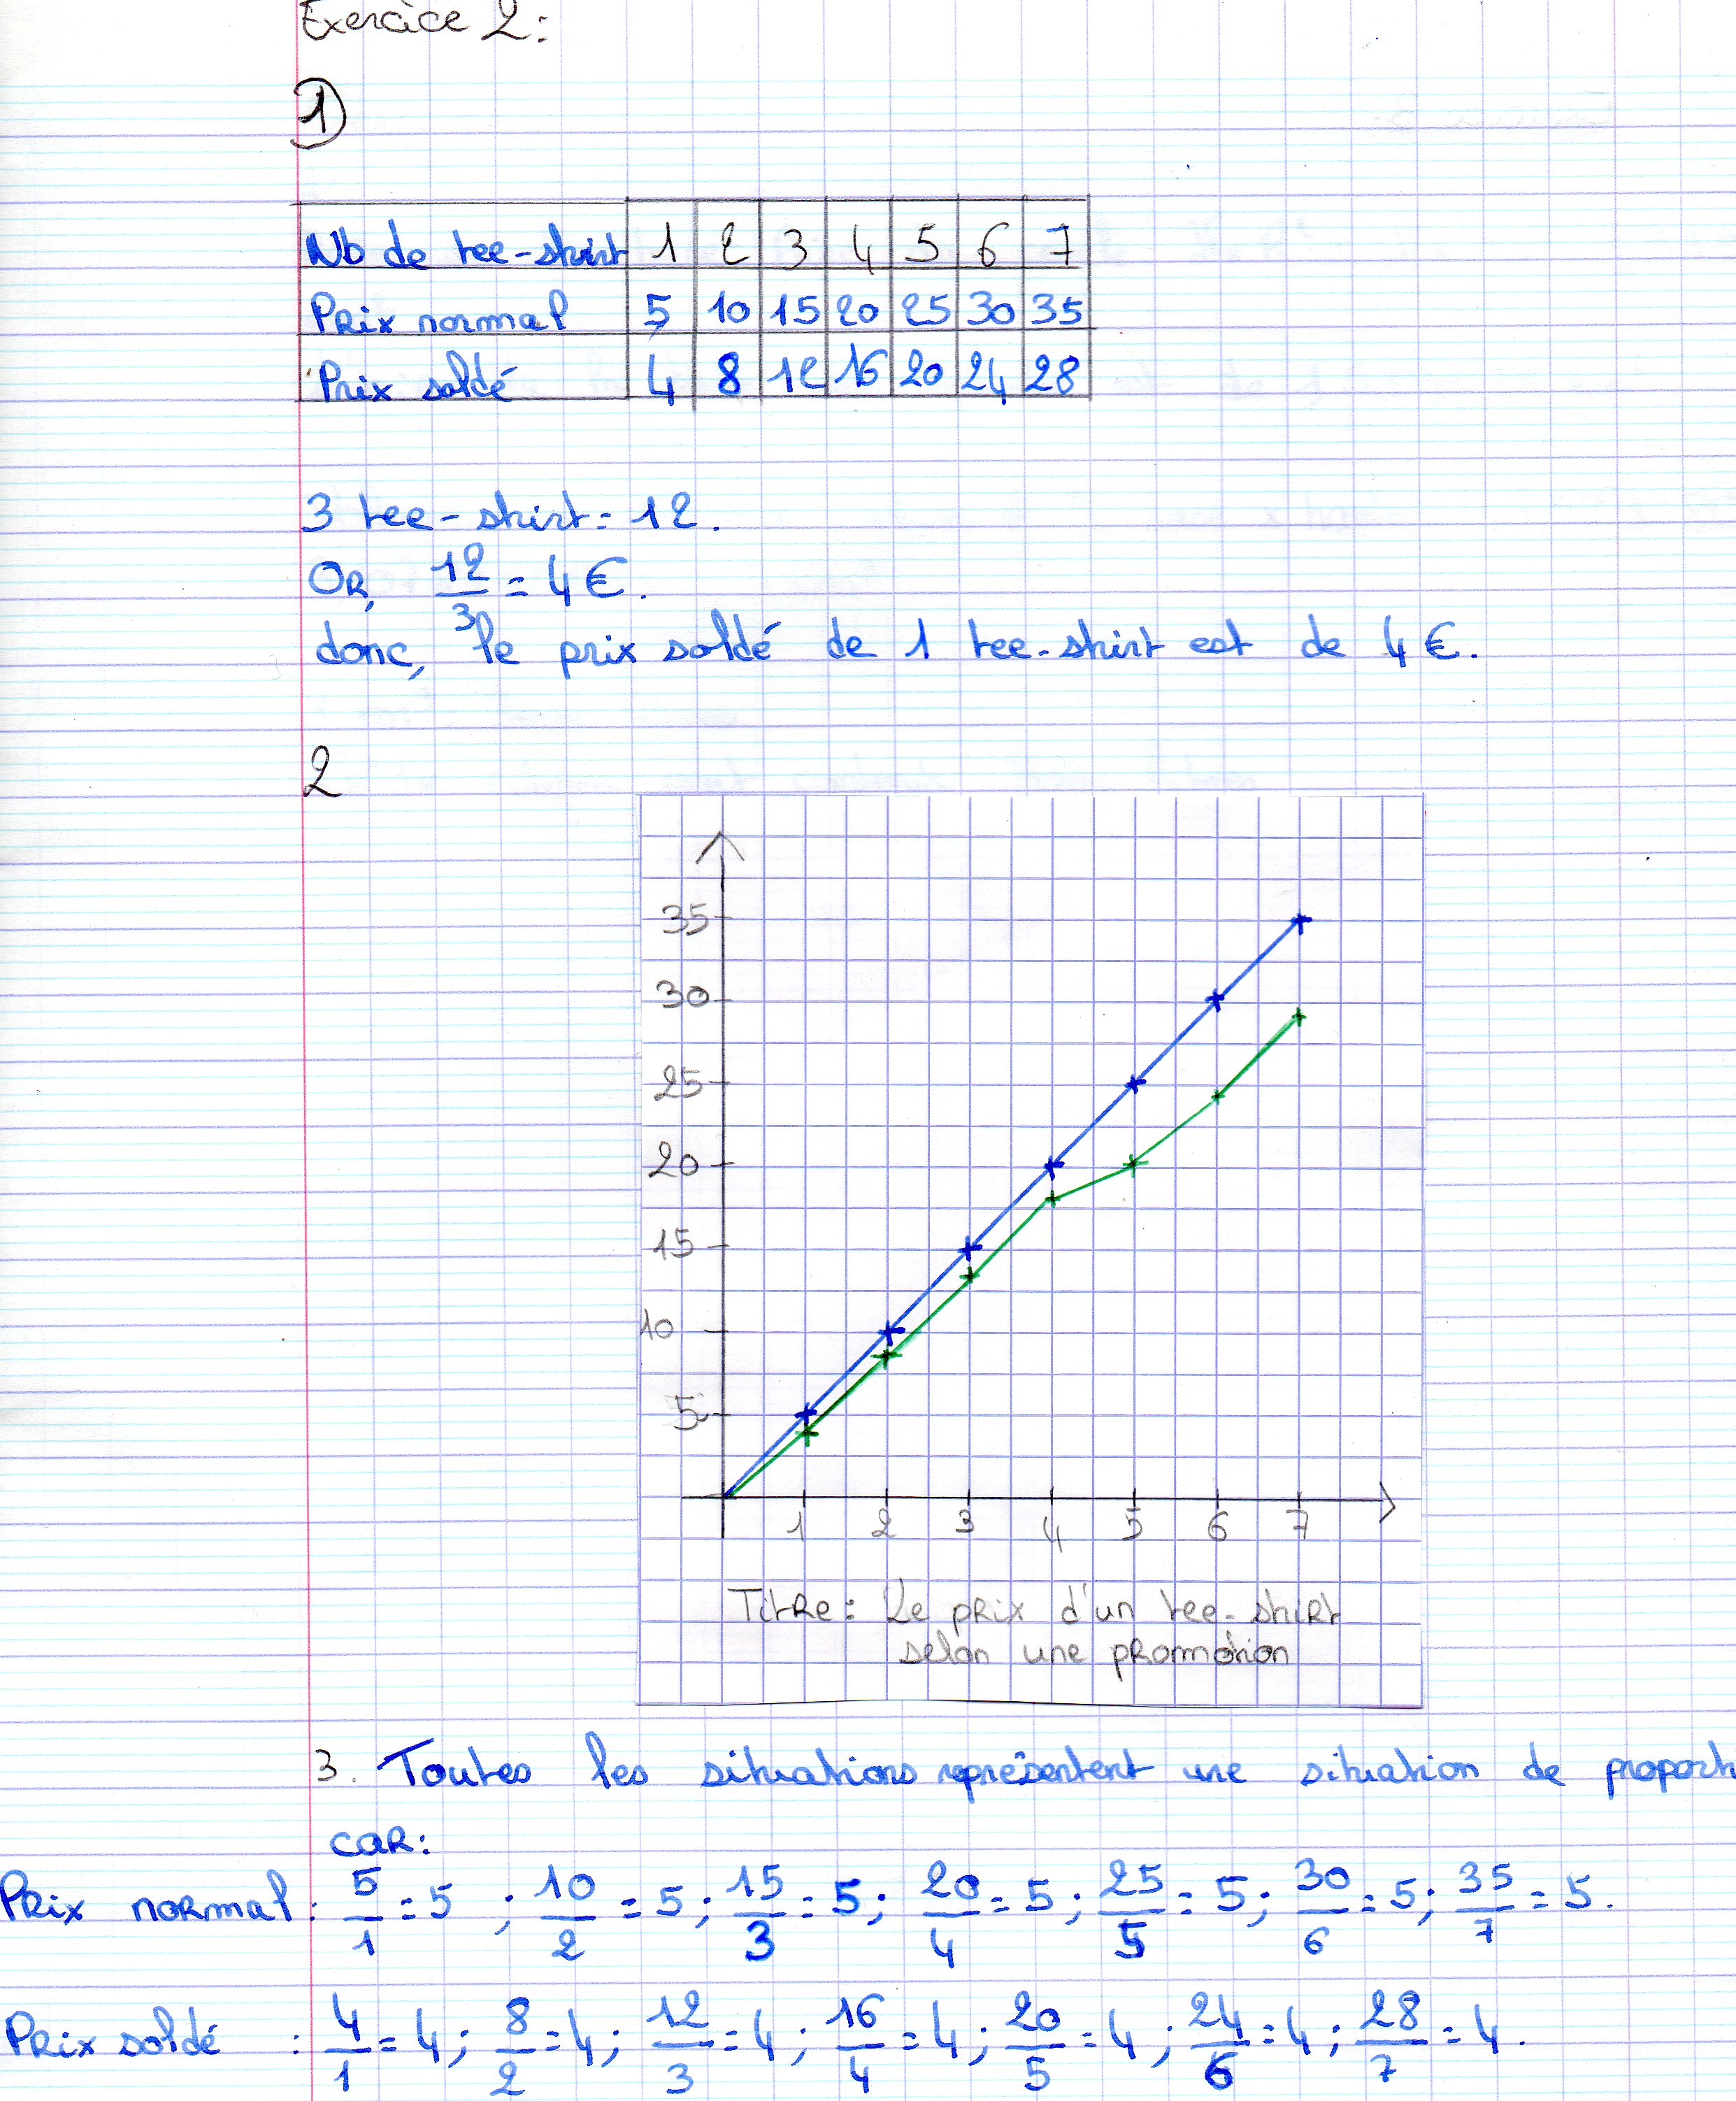 Exercice 2:
1)
Nb de tee-shirt 1 2 3 4 5 6 7
Prix normal 5 10 15 20 25 30 35
Prix soldé 4 8 12 16 20 24 28
3 tee-shirt = 12.
Or, 12/3 = 4€.
donc, le prix soldé de 1 tee-shirt est de 4€.
2
35
30
25
20
15
10
5
1 2 3 4 5 6 7
Titre: Le prix d'un tee-shirt
selon une promotion
3. Toutes les situations représentent une situation de proport
car:
Prix normal: 5/1 = 5 ; 10/2 = 5 ; 15/3 = 5 ; 20/4 = 5 ; 25/5 = 5 ; 30/6 = 5 ; 35/7 = 5.
Prix soldé : 4/1 = 4 ; 8/2 = 4 ; 12/3 = 4 ; 16/4 = 4 ; 20/5 = 4 ; 24/6 = 4 ; 28/7 = 4.